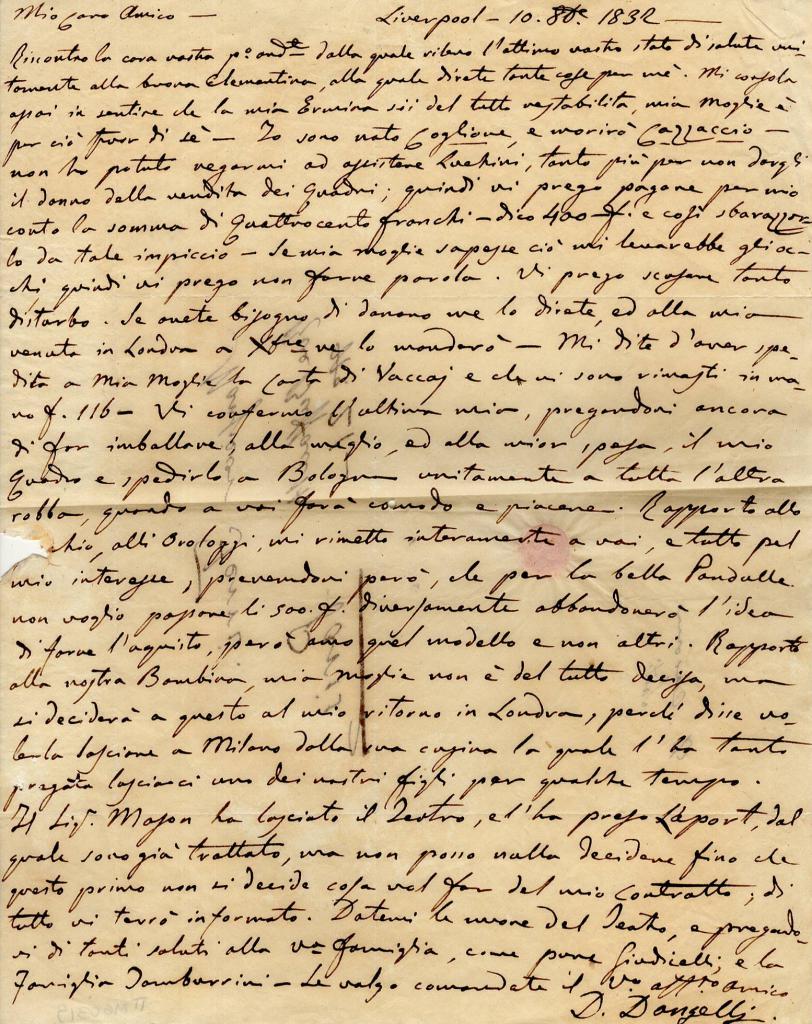 Mio Caro Amico — Liverpool — 10. 8bre. 1832 —
Riscontro la cara vostra pmo andte dalla quale rilevo l'ottimo vostro stato di salute uni-
tamente alla buona Clementina, alla quale direte tante cose per mè. Mi consola
assai in sentire che la mia Ermina sii del tutto ristabilita, mia moglie è
per ciò fuor di sè — Io sono nato Coglione, e morirò Cazzaccio —
non ho potuto negarmi ad assistere Luchini, tanto più per non dargli
il danno della vendita dei Quadri; quindi vi prego pagare per mio
conto la somma di Quattrocento franchi — dico 400 — f. e così sbarazzar-
lo da tale impiccio — Se mia moglie sapesse ciò mi levarebbe gli oc-
chi quindi vi prego non farne parola. Vi prego scusare tanto
disturbo. Se avete bisogno di danaro me lo direte, ed alla mia
venuta in Londra a Xbre ve lo manderò — Mi dite d'aver spe-
dita a Mia Moglie la Carta di Vaccaj e che vi sono rimasti in ma-
no f. 116 — Vi confermo l'ultima mia, pregandovi ancora
di far imballare alla meglio, ed alla mior spesa, il mio
Quadro e spedirlo a Bologna unitamente a tutta l'altra
robba, quando a voi farà comodo e piacere. Rapporto allo
chio, alli Orologgi, mi rimetto interamente a voi, e tutto pel
mio interesse, prevenendovi però, che per la bella Pandulle
non voglio passare li 500. f. diversamente abbandonerò l'idea
di farne l'aquisto, però amo quel modello e non altri. Rapporto
alla nostra Bambina, mia moglie non è del tutto decisa, ma
si deciderà a questo al mio ritorno in Londra, perché disse vo-
lerla lasciare a Milano dalla sua cugina la quale l'ha tanto
pregata lasciarci uno dei nostri figli per qualche tempo.
Il Sigr. Mason ha lasciato il Teatro, e l'ha preso Laport, dal
quale sono già trattato, ma non posso nulla decidere fino che
questo primo non si decide cosa vol far del mio Contratto; di
tutto vi terrò informato. Datemi le nuove del Teatro, e pregado-
vi di tanti saluti alla va famiglia, come pure Giudicelli, e la
Famiglia Tamburrini — Le valgo comandate il vo affmo amico
D. Donzelli.